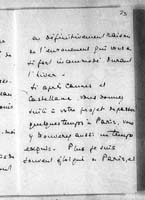 23
as définitivement raison
de l'enrouement qui vous a
si fort incommodé durant
l'hiver.
Si après Cannes et
Castellane, vous donnez
suite à votre projet de passer
quelques temps à Paris, vous
y trouverez aussi un temps
exquis. Plus je suis
souvent éloigné de Paris, et